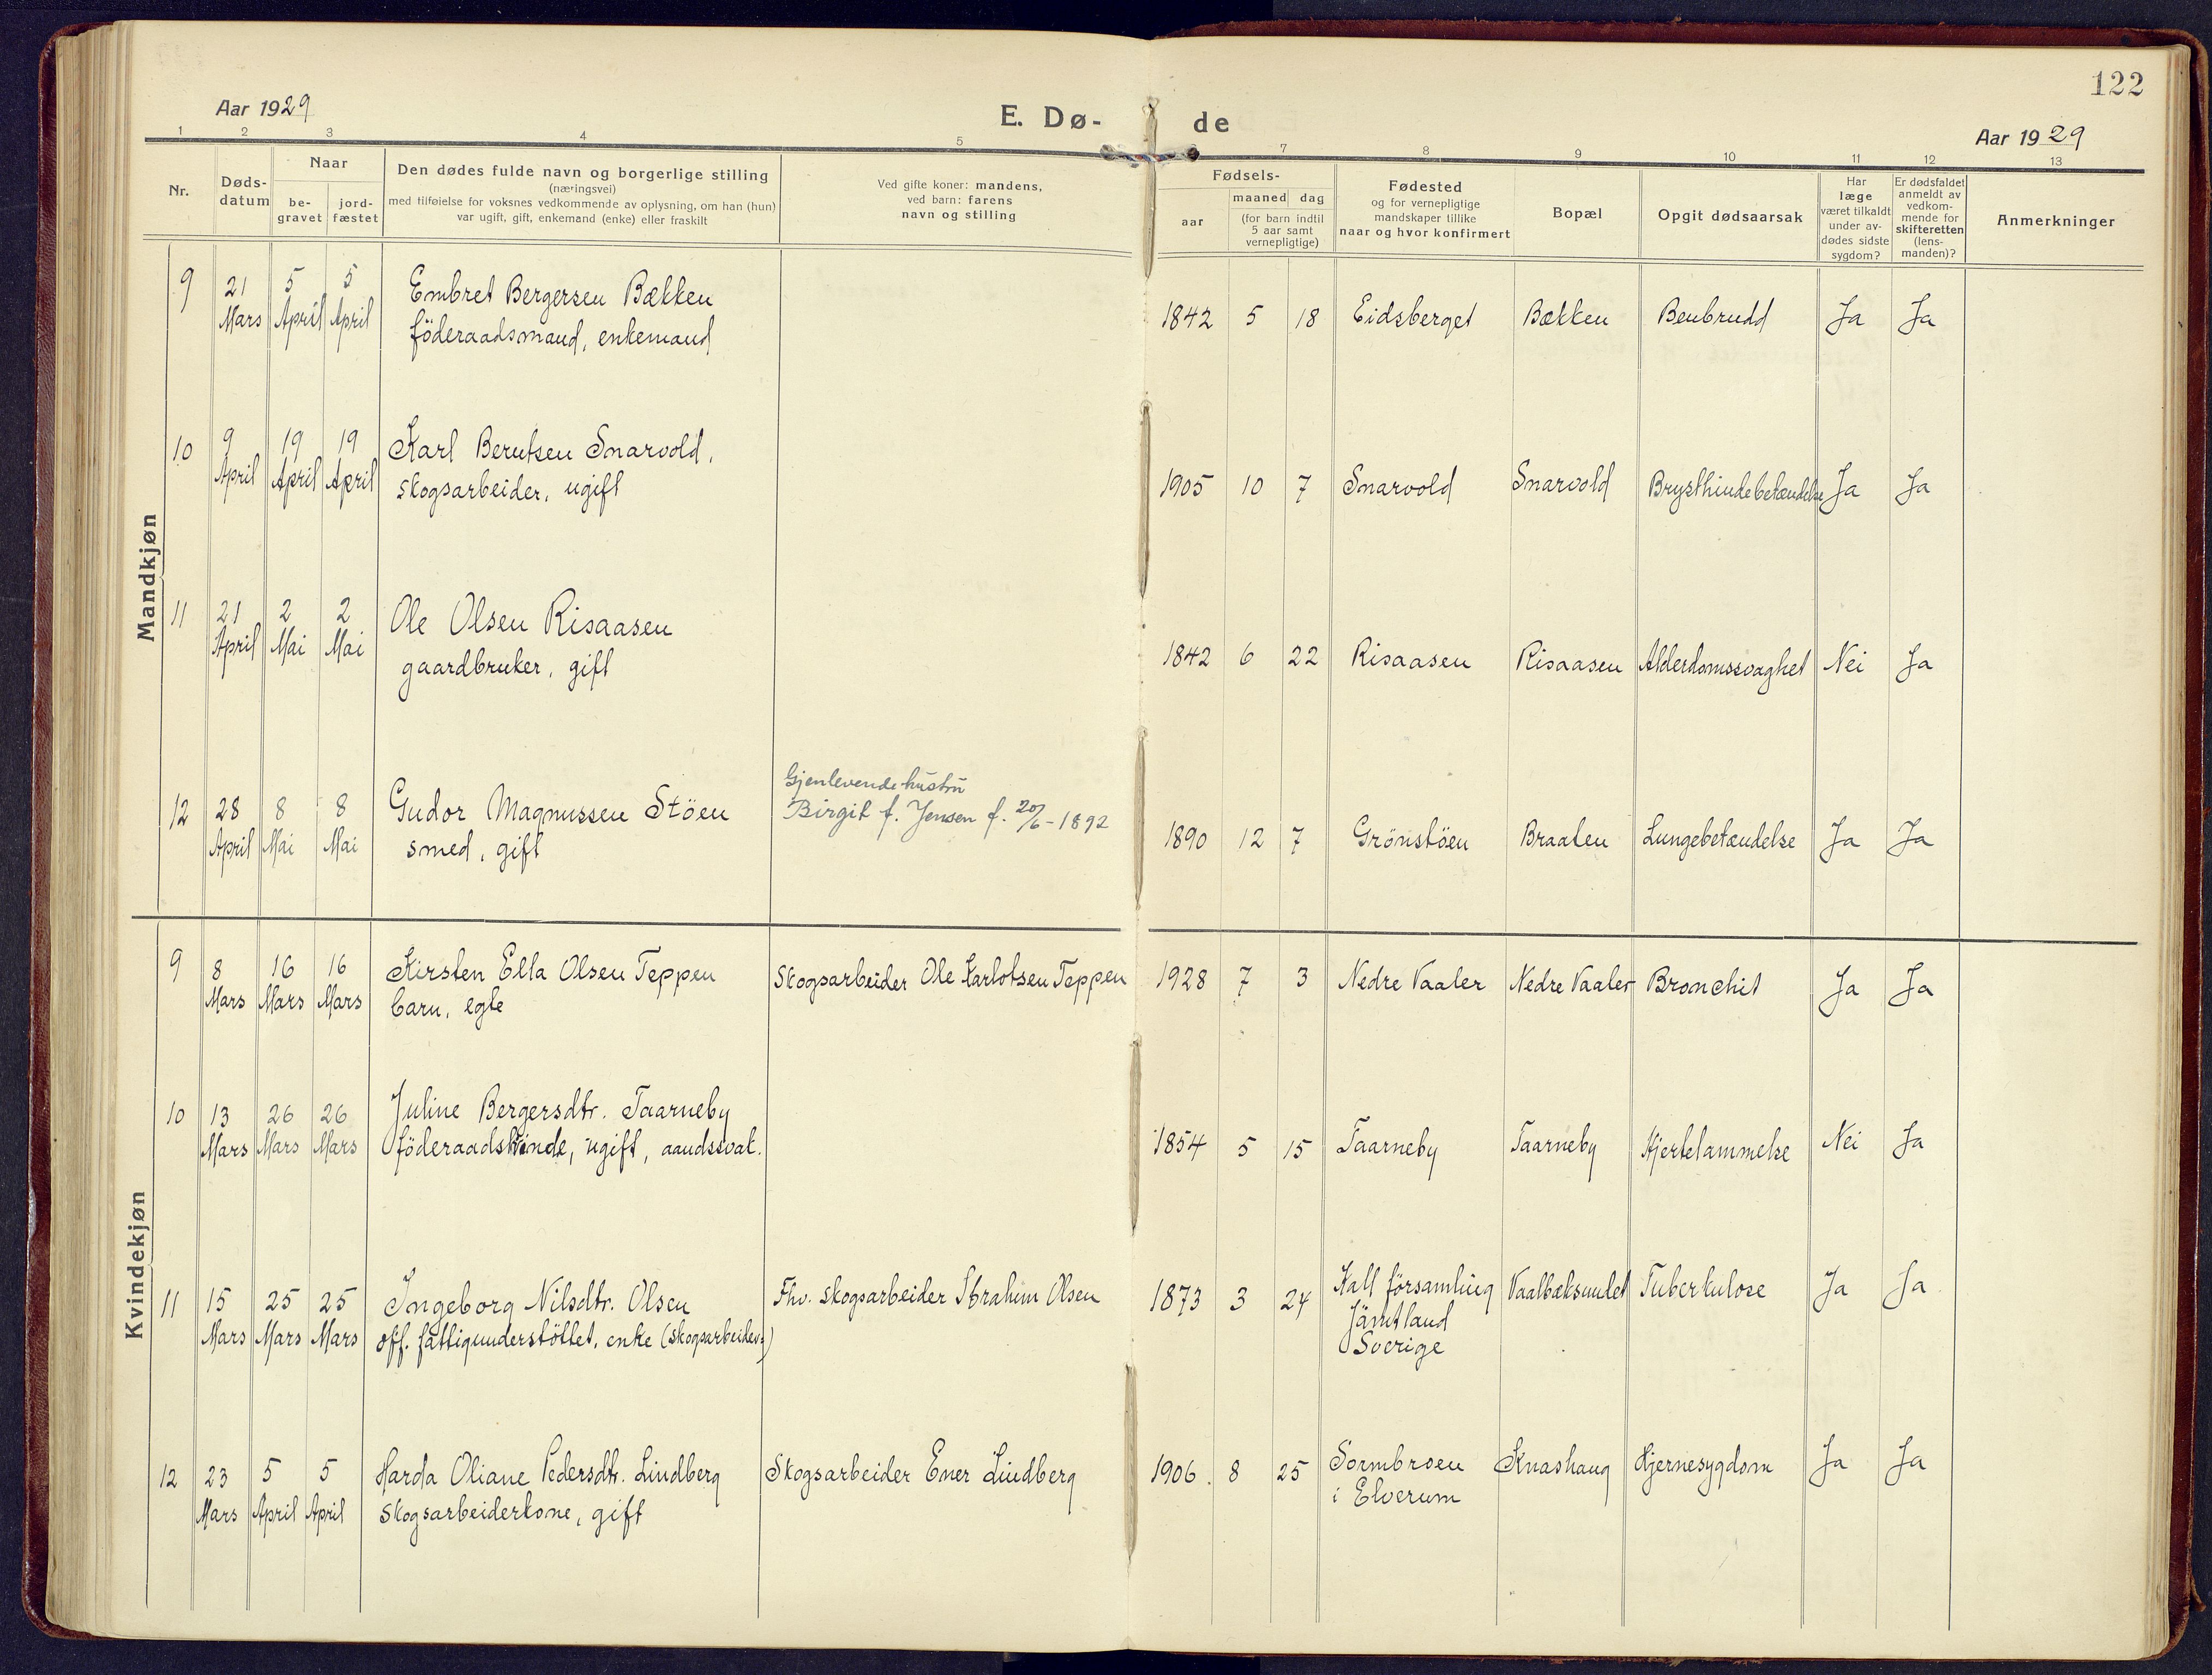 122
Aar 1929
E. Dø-
de
Aar 1929
1 2 3 4 5 7 8 9 10 11 12 13
Nr.
Døds-
datum
Naar
be-
gravet
jord-
fæstet
Den dødes fulde navn og borgerlige stilling
(næringsvei)
med tilføielse for voksnes vedkommende av oplysning, om han (hun)
var ugift, gift, enkemand (enke) eller fraskilt
Ved gifte koner: mandens,
ved barn: farens
navn og stilling
Fødsels-
aar
maaned dag
(for barn indtil
5 aar samt
vernepligtige)
Fødested
og for vernepligtige
mandskaper tillike
naar og hvor konfirmert
Bopæl
Opgit dødsaarsak
Har
læge
været tilkaldt
under av-
dødes sidste
sygdom?
Er dødsfaldet
anmeldt av
vedkom-
mende for
skifteretten
(lens-
manden)?
Anmerkninger
Mandkjøn
9 21 5 5 Embret Bergersen Bækken
Mars April April föderaadsmand, enkemand
1842 5 18 Eidsberget Bækken Benbrudd Ja Ja
10 9 19 19 Karl Berntsen Snarvold,
April April April skogsarbeider, ugift
1905 10 7 Snarvold Snarvold Brysthindebetændelse Ja Ja
11 21 2 2 Ole Olsen Risaasen
April Mai Mai gaardbruker, gift
1842 6 22 Risaasen Risaasen Alderdomssvaghet Nei Ja
Gjenlevende hustru
12 28 8 8 Gudor Magnussen Stöen Birgit f. Jensen f. 20/6-1892
April Mai Mai smed, gift
1890 12 7 Grönstöen Braaten Lungebetændelse Ja Ja
Kvindekjøn
9 8 16 16 Kirsten Ella Olsen Teppen Skogsarbeider Ole Karlotsen Teppen 1928 7 3 Nedre Vaaler Nedre Vaaler Bronchit Ja Ja
Mars Mars Mars barn, egte
10 13 26 26 Juline Bergersdtr. Taarneby
Mars Mars Mars föderaadskvinde, ugift, aandssvak.
1854 5 15 Taarneby Taarneby Hjertelammelse Nei Ja
11 15 25 25 Ingeborg Nilsdtr. Olsen Fhv. skogsarbeider Ibrahim Olsen 1873 3 24 Kall församling Vaalbæksundet Tuberkulose Ja Ja
Mars Mars Mars off. fattigunderstöttet, enke (skogsarbeider) Jämtland
Sverige
12 23 5 5 Harda Oliane Pedersdtr. Lindberg Skogsarbeider Ener Lindberg 1906. 8 25 Sormbroen Knashaug Hjernesygdom Ja Ja
Mars April April skogsarbeiderkone, gift i Elverum